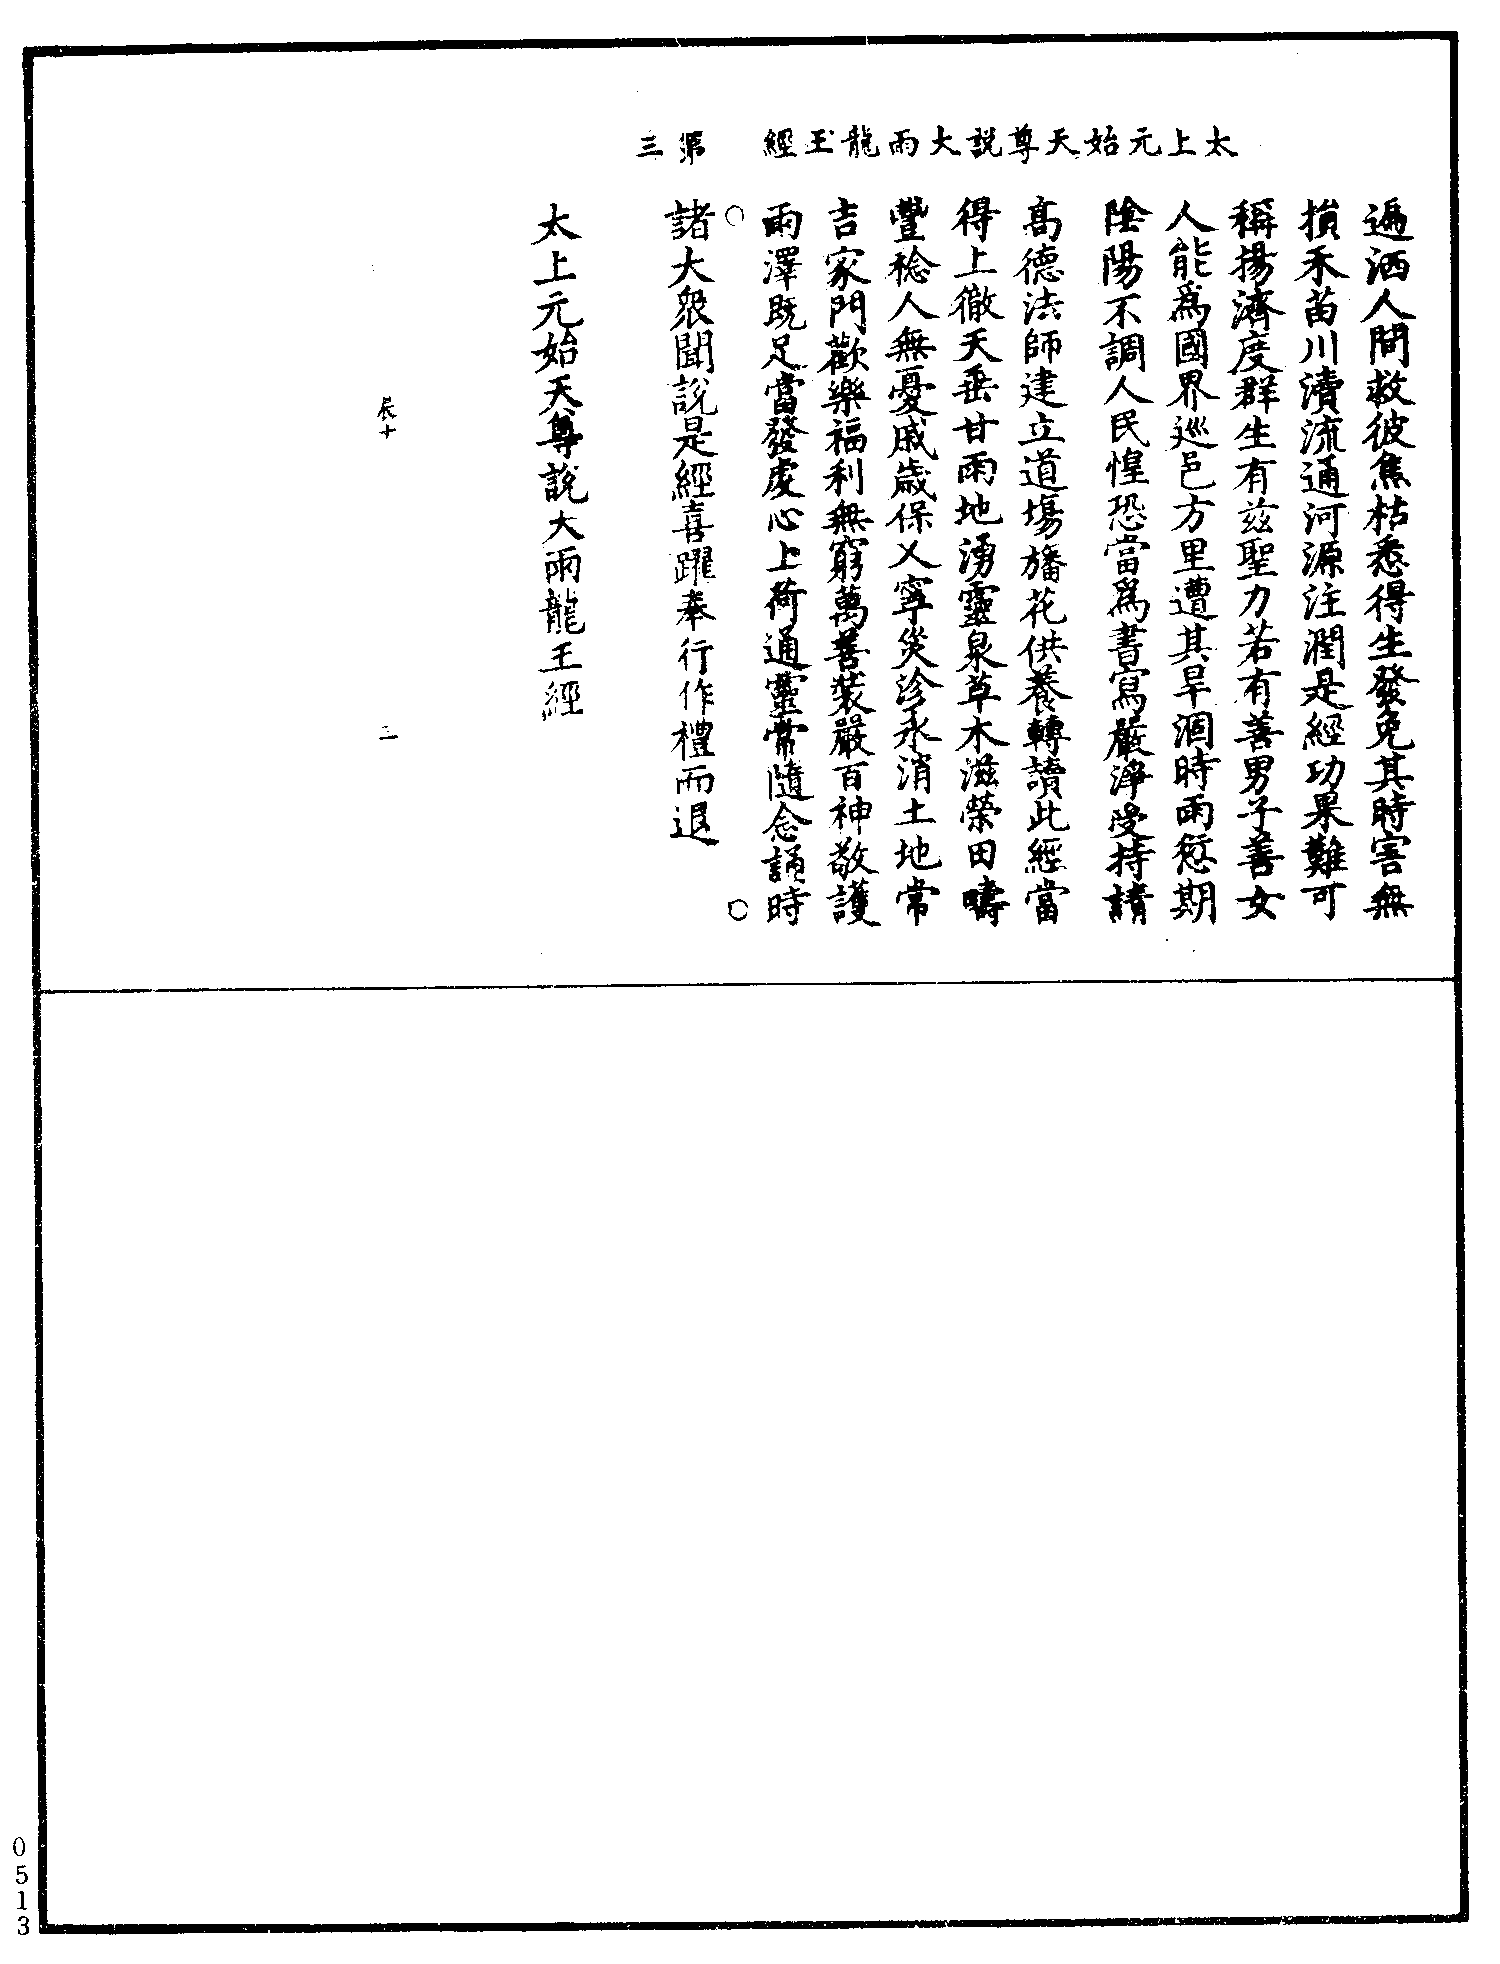 太上元始天尊說大雨龍王經　第三
遍洒人間救彼焦枯悉得生發免其時害無
損禾苗川瀆流通河源注潤是經功果難可
稱揚濟度群生有兹聖力若有善男子善女
人能爲國界巡邑方里遭其旱涸時雨愆期
陰陽不調人民惶恐當爲書寫嚴淨受持請
高德法師建立道場旛花供養轉讀此經當
得上徹天垂甘雨地湧靈泉草木滋榮田疇
豐稔人無憂戚歲保乂寧災沴永消土地常
吉家門歡樂福利無窮萬善裝嚴百神敬護
雨澤旣足當發處心上荷通靈常隨念誦時
○　○
諸大衆聞說是經喜躍奉行作禮而退
太上元始天尊說大雨龍王經
辰十　三
0513